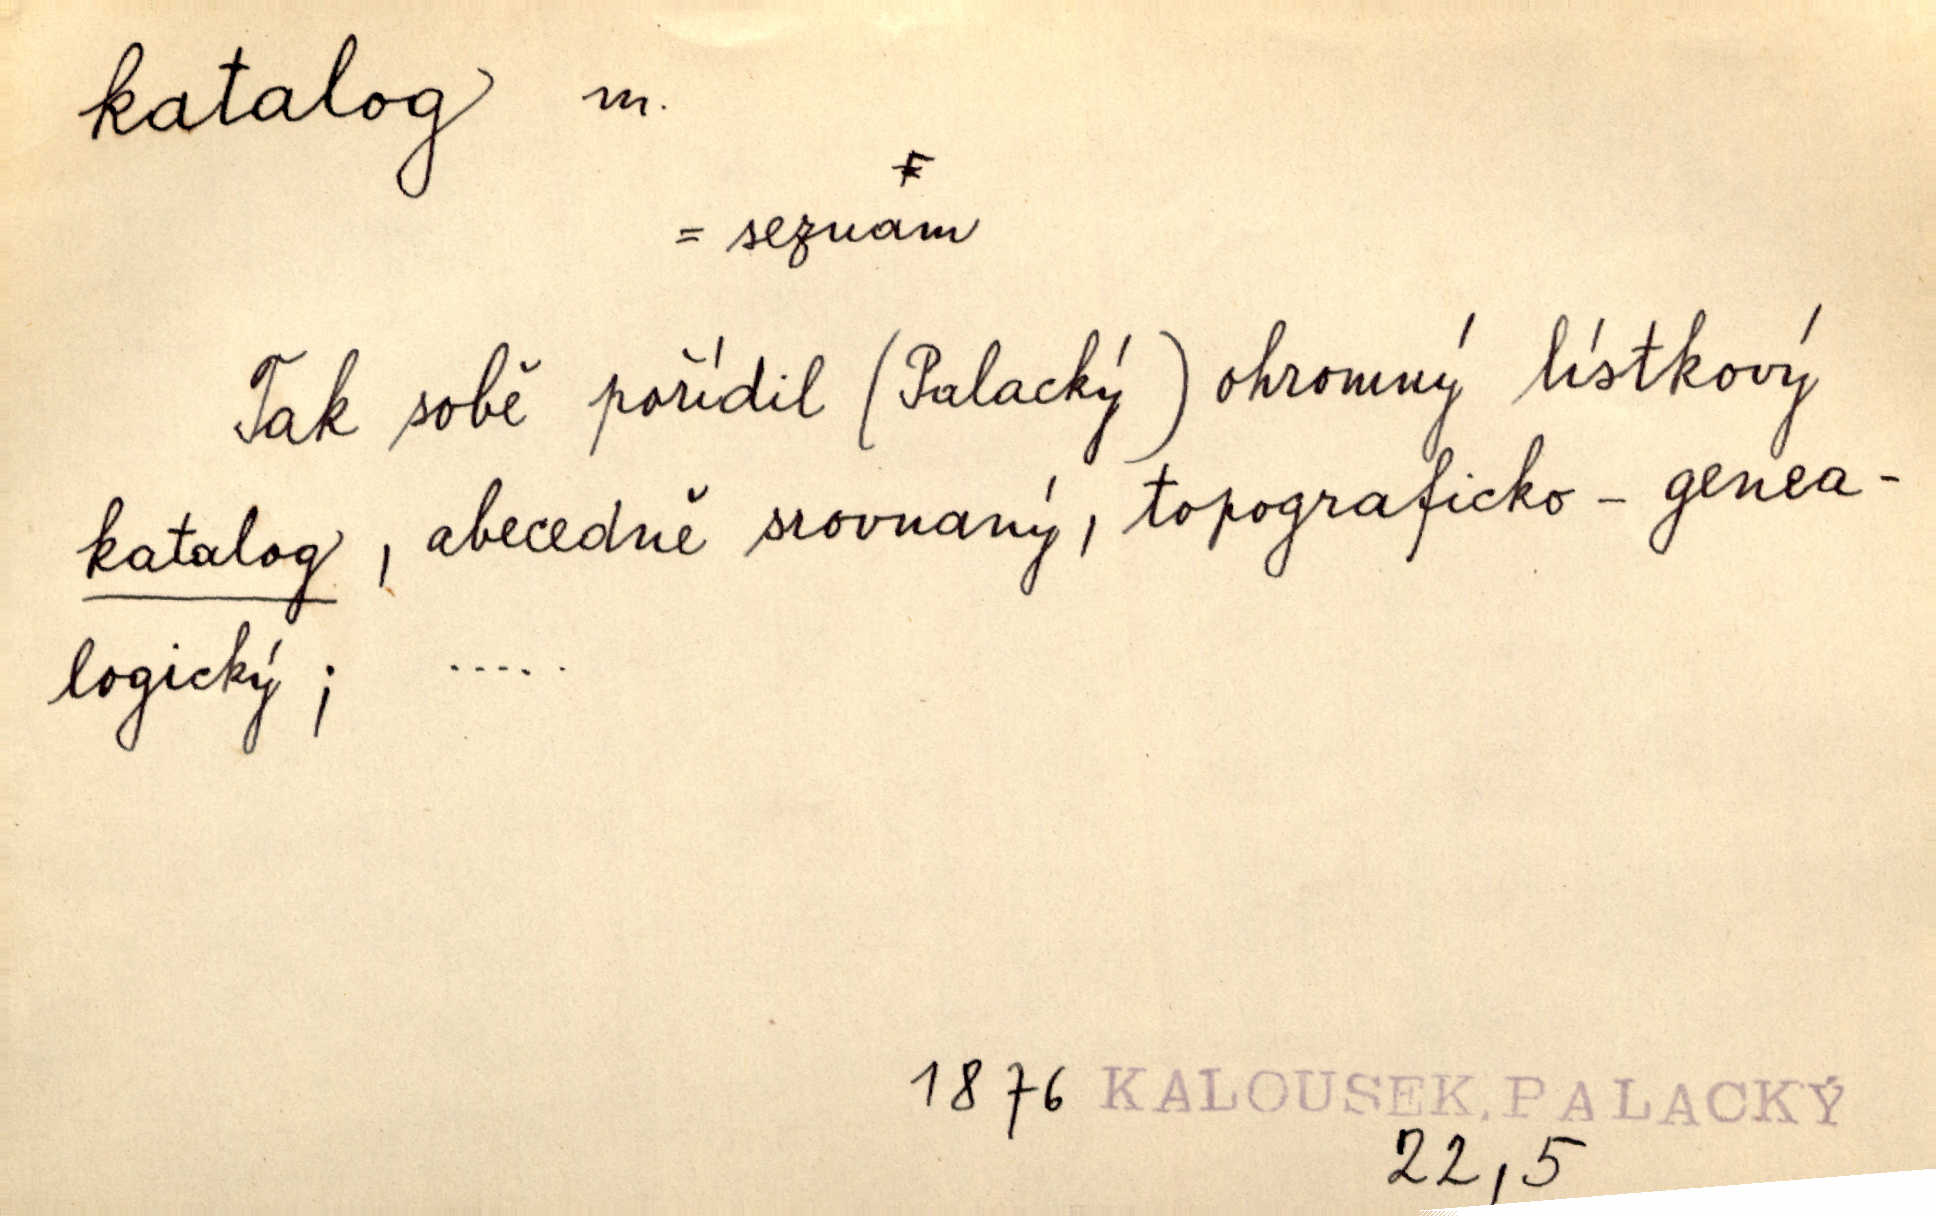 katalog m.
= seznam
Tak sobě pořídil (Palacký) ohromný lístkový
katalog, abecedně srovnaný, topograficko - genea-
logický; .....
1876 KALOUSEK, PALACKÝ
22,5